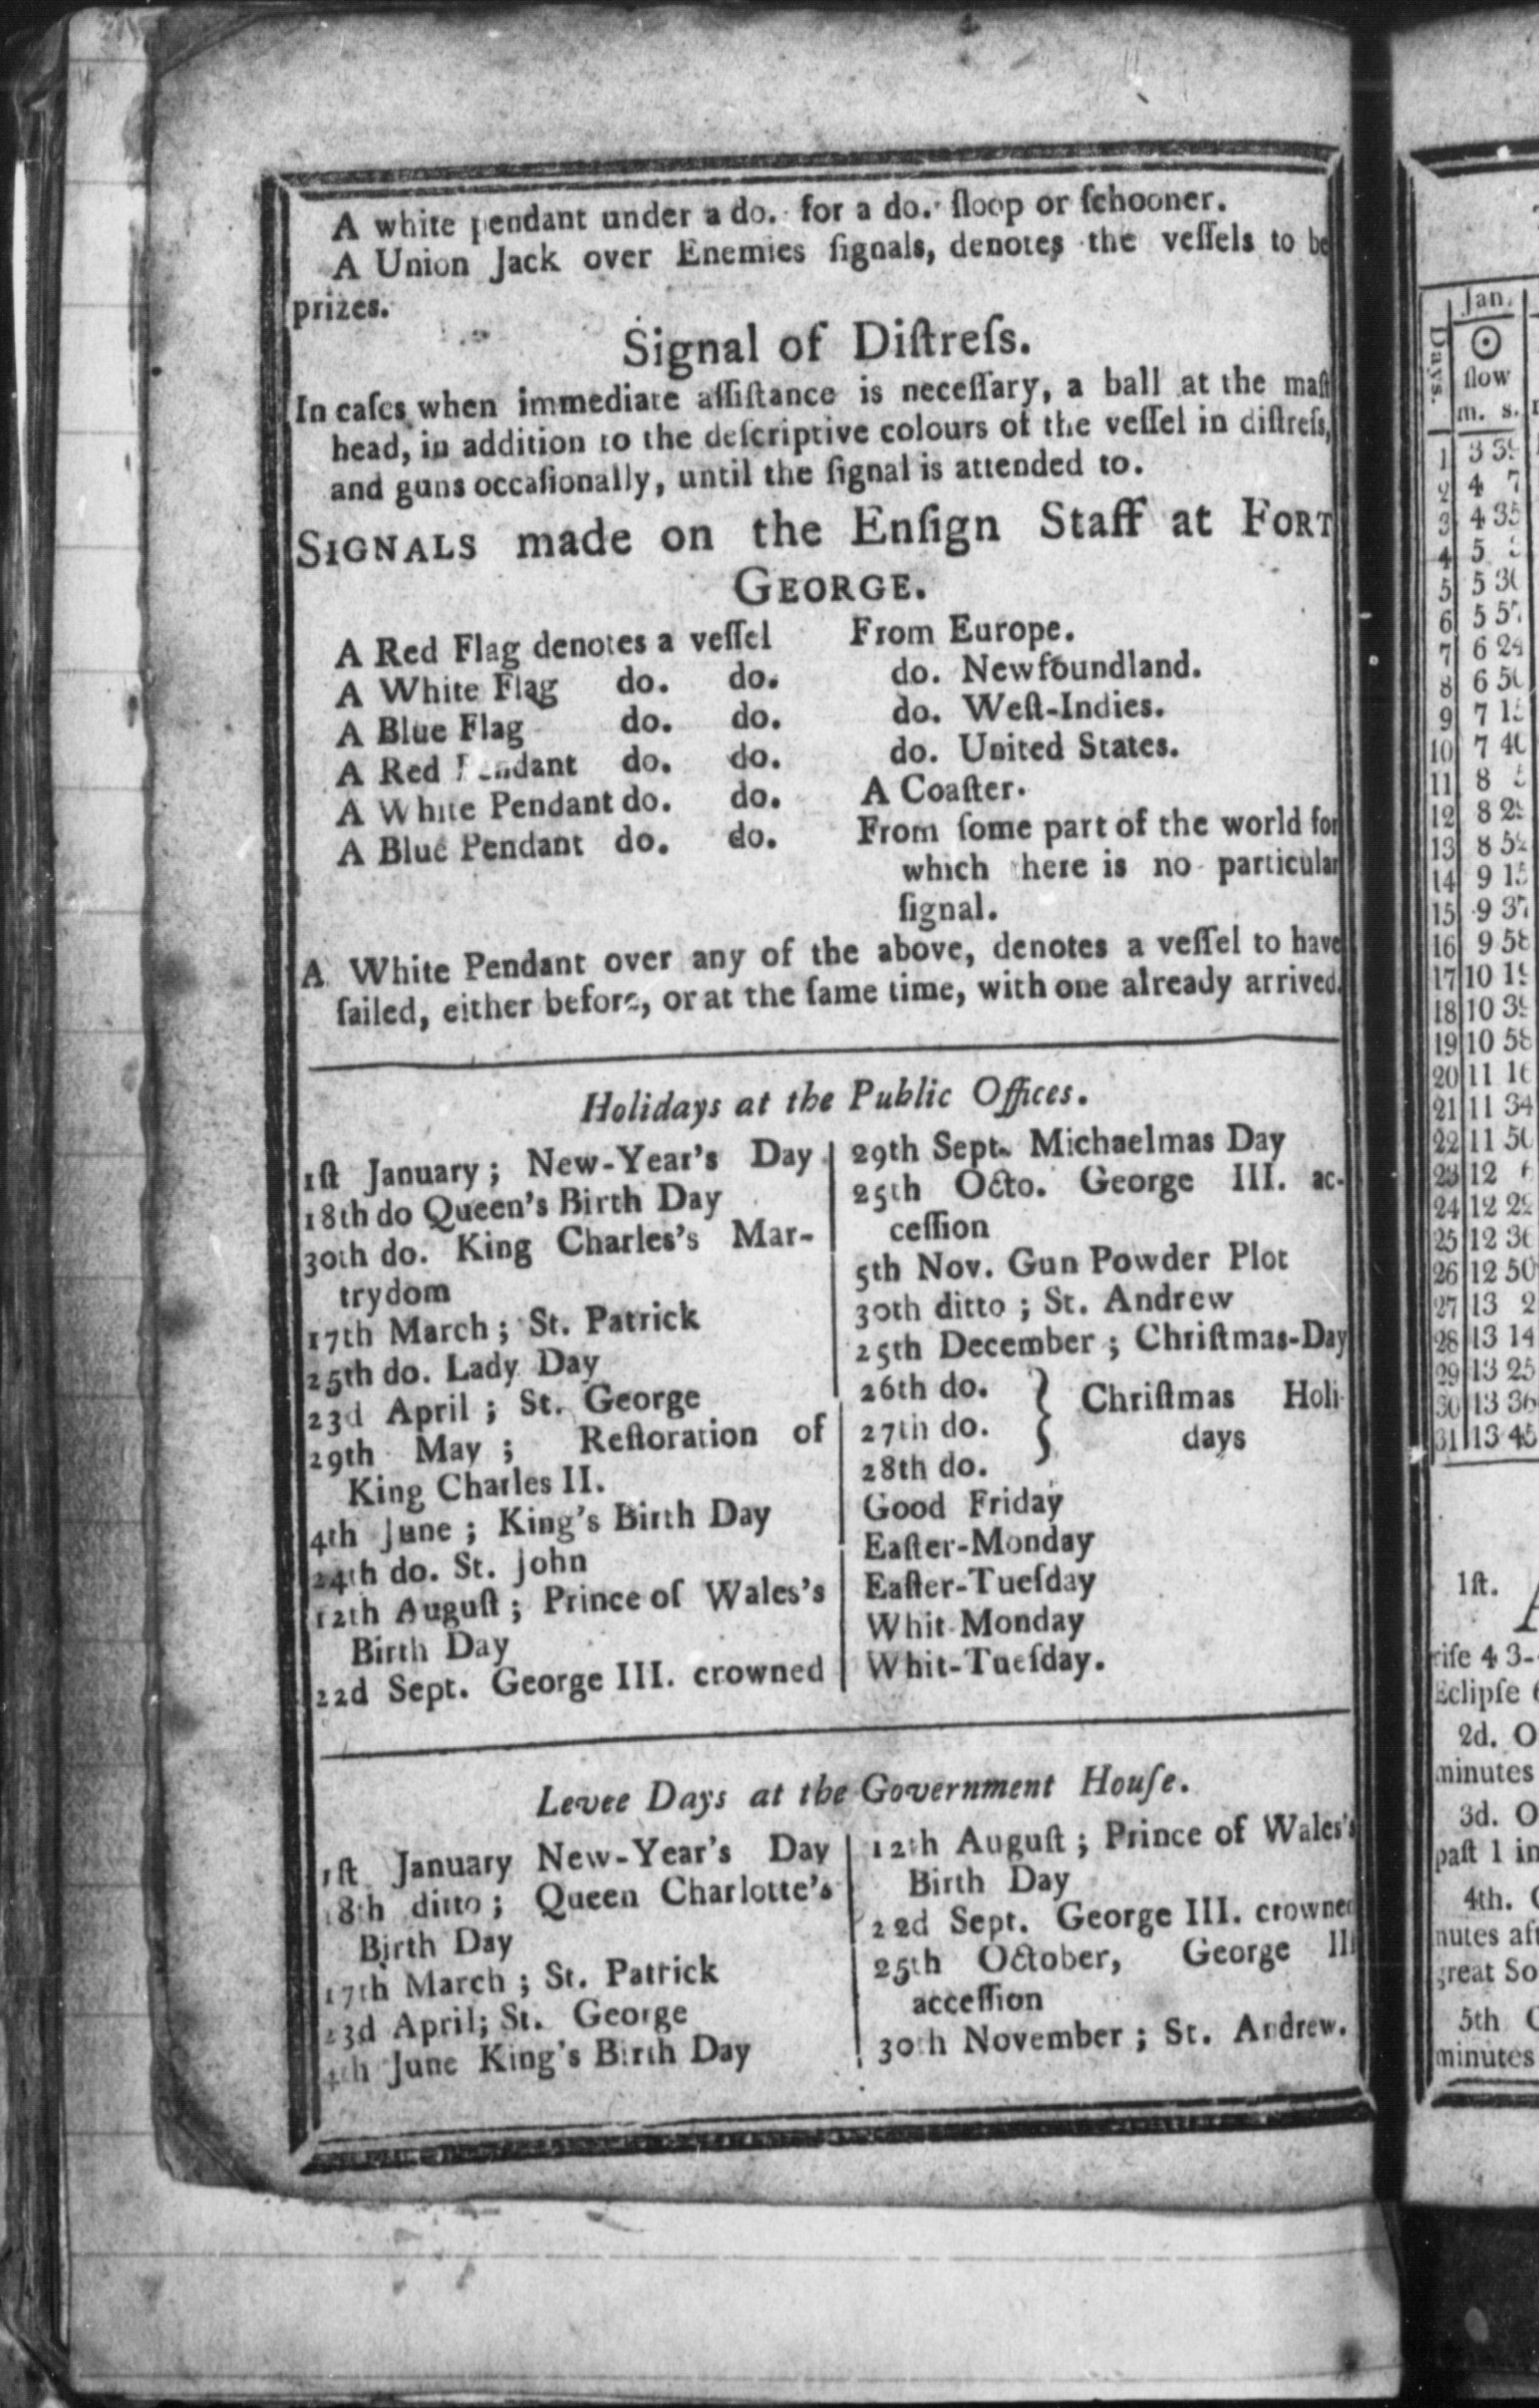 A white pendant under a do. for a do. ſloop or ſchooner.
A Union Jack over Enemies ſignals, denotes the veſſels to be
prizes.
Signal of Diſtreſs.
In caſes when immediate aſſiſtance is neceſſary, a ball at the maſt
head, in addition to the deſcriptive colours of the veſſel in diſtreſs,
and guns occaſionally, until the ſignal is attended to.
SIGNALS made on the Enſign Staff at FORT
GEORGE.
A Red Flag denotes a veſſel From Europe.
A White Flag do. do. do. Newfoundland.
A Blue Flag do. do. do. Weſt-Indies.
A Red Pendant do. do. do. United States.
A White Pendant do. do. A Coaſter.
A Blue Pendant do. do. From ſome part of the world for
which there is no particular
ſignal.
A White Pendant over any of the above, denotes a veſſel to have
ſailed, either before, or at the ſame time, with one already arrived.
Holidays at the Public Offices.
1ſt January; New-Year's Day
18th do Queen's Birth Day
30th do. King Charles's Mar-
trydom
17th March; St. Patrick
25th do. Lady Day
23d April; St. George
29th May; Reſtoration of
King Charles II.
4th June; King's Birth Day
24th do. St. John
12th Auguſt; Prince of Wales's
Birth Day
22d Sept. George III. crowned
29th Sept. Michaelmas Day
25th Octo. George III. ac-
ceſſion
5th Nov. Gun Powder Plot
30th ditto; St. Andrew
25th December; Chriſtmas-Day
26th do.
27th do. } Chriſtmas Holi-
days
28th do.
Good Friday
Eaſter-Monday
Eaſter-Tueſday
Whit-Monday
Whit-Tueſday.
Levee Days at the Government Houſe.
1ſt January New-Year's Day
18th ditto; Queen Charlotte's
Birth Day
17th March; St. Patrick
23d April; St. George
4th June King's Birth Day
12th Auguſt; Prince of Wales's
Birth Day
22d Sept. George III. crowned
25th October, George III
acceſſion
30th November; St. Andrew.
Jan.
Days.
☉
ſlow
m. s.
1 3
2 4 7
3 4 35
4 5
5 5
6 5
7 6 24
8 6
9 7
10 7
11 8
12 8
13 8
14 9
15 9
16 9
17 10
18 10
19 10
20 11
21 11 34
22 11
23 12
24 12
25 12
26 12 50
27 13 2
28 13 14
29 13 25
30 13 36
31 13 45
1ſt.
riſe 4
Eclipſe
2d. O
minutes
3d. O
paſt 1 in
4th.
nutes
great So
5th
minutes